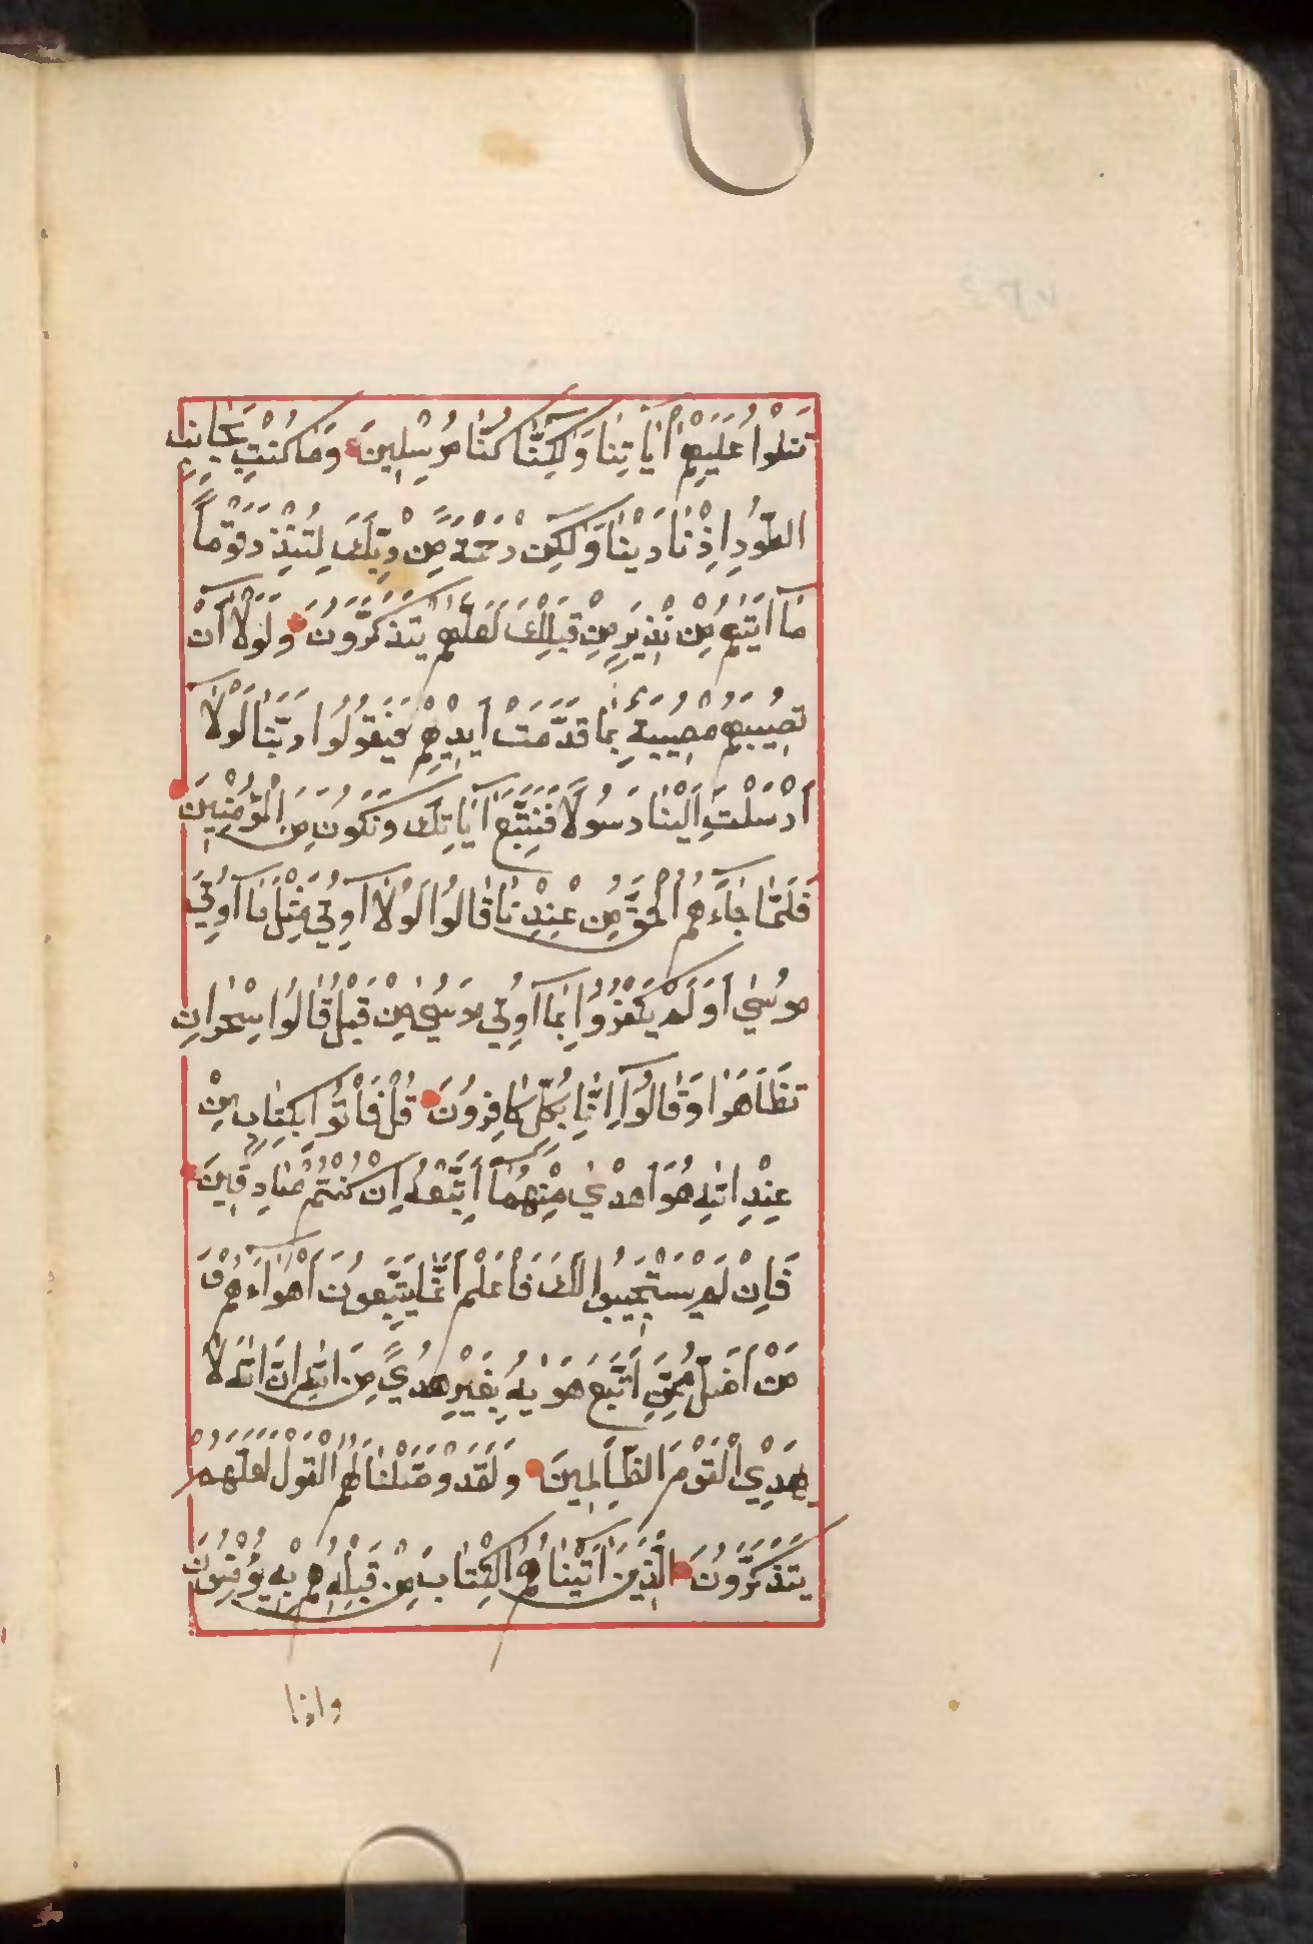 تتلوا عليهم اياتنا ولكنا كنا مرسلين وما كنت بجانب
الطور اذ نادينا ولكن رحمة من ربك لتنذر قوما
ما اتيهم من نذير من قبلك لعلهم يتذكرون ولولا ان
تصيبهم مصيبة بما قدمت ايديهم فيقولوا ربنا لولا
ارسلت الينا رسولا فنتبع اياتك ونكون من المؤمنين
فلما جاءهم الحق من عندنا قالوا لولا اوتي مثل ما اوتي
موسي اولم يكفروا بما اوتي موسي من قبل قالوا سحران
تظاهرا وقالوا انا بكل كافرون قل فاتوا بكتاب من
عند الله هو اهدي منهما اتبعه ان كنتم صادقين
فان لم يستجيبوا لك فاعلم انما يتبعون اهواءهم و
من اضل ممن اتبع هويه بغير هدي من الله ان الله لا
يهدي القوم الظالمين ولقد وصلنا لهم القول لعلهم
يتذكرون الذين اتيناهم الكتاب من قبله هم به يؤمنون
واذا